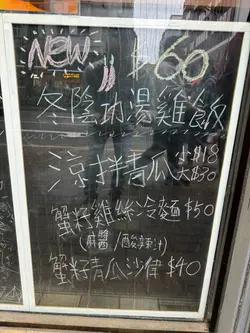 NEW $60
冬陰功湯雞飯
涼拌青瓜 小$18
大$30
蟹籽雞絲冷麵 $50
(麻醬/酸辣汁)
蟹籽青瓜沙律 $40